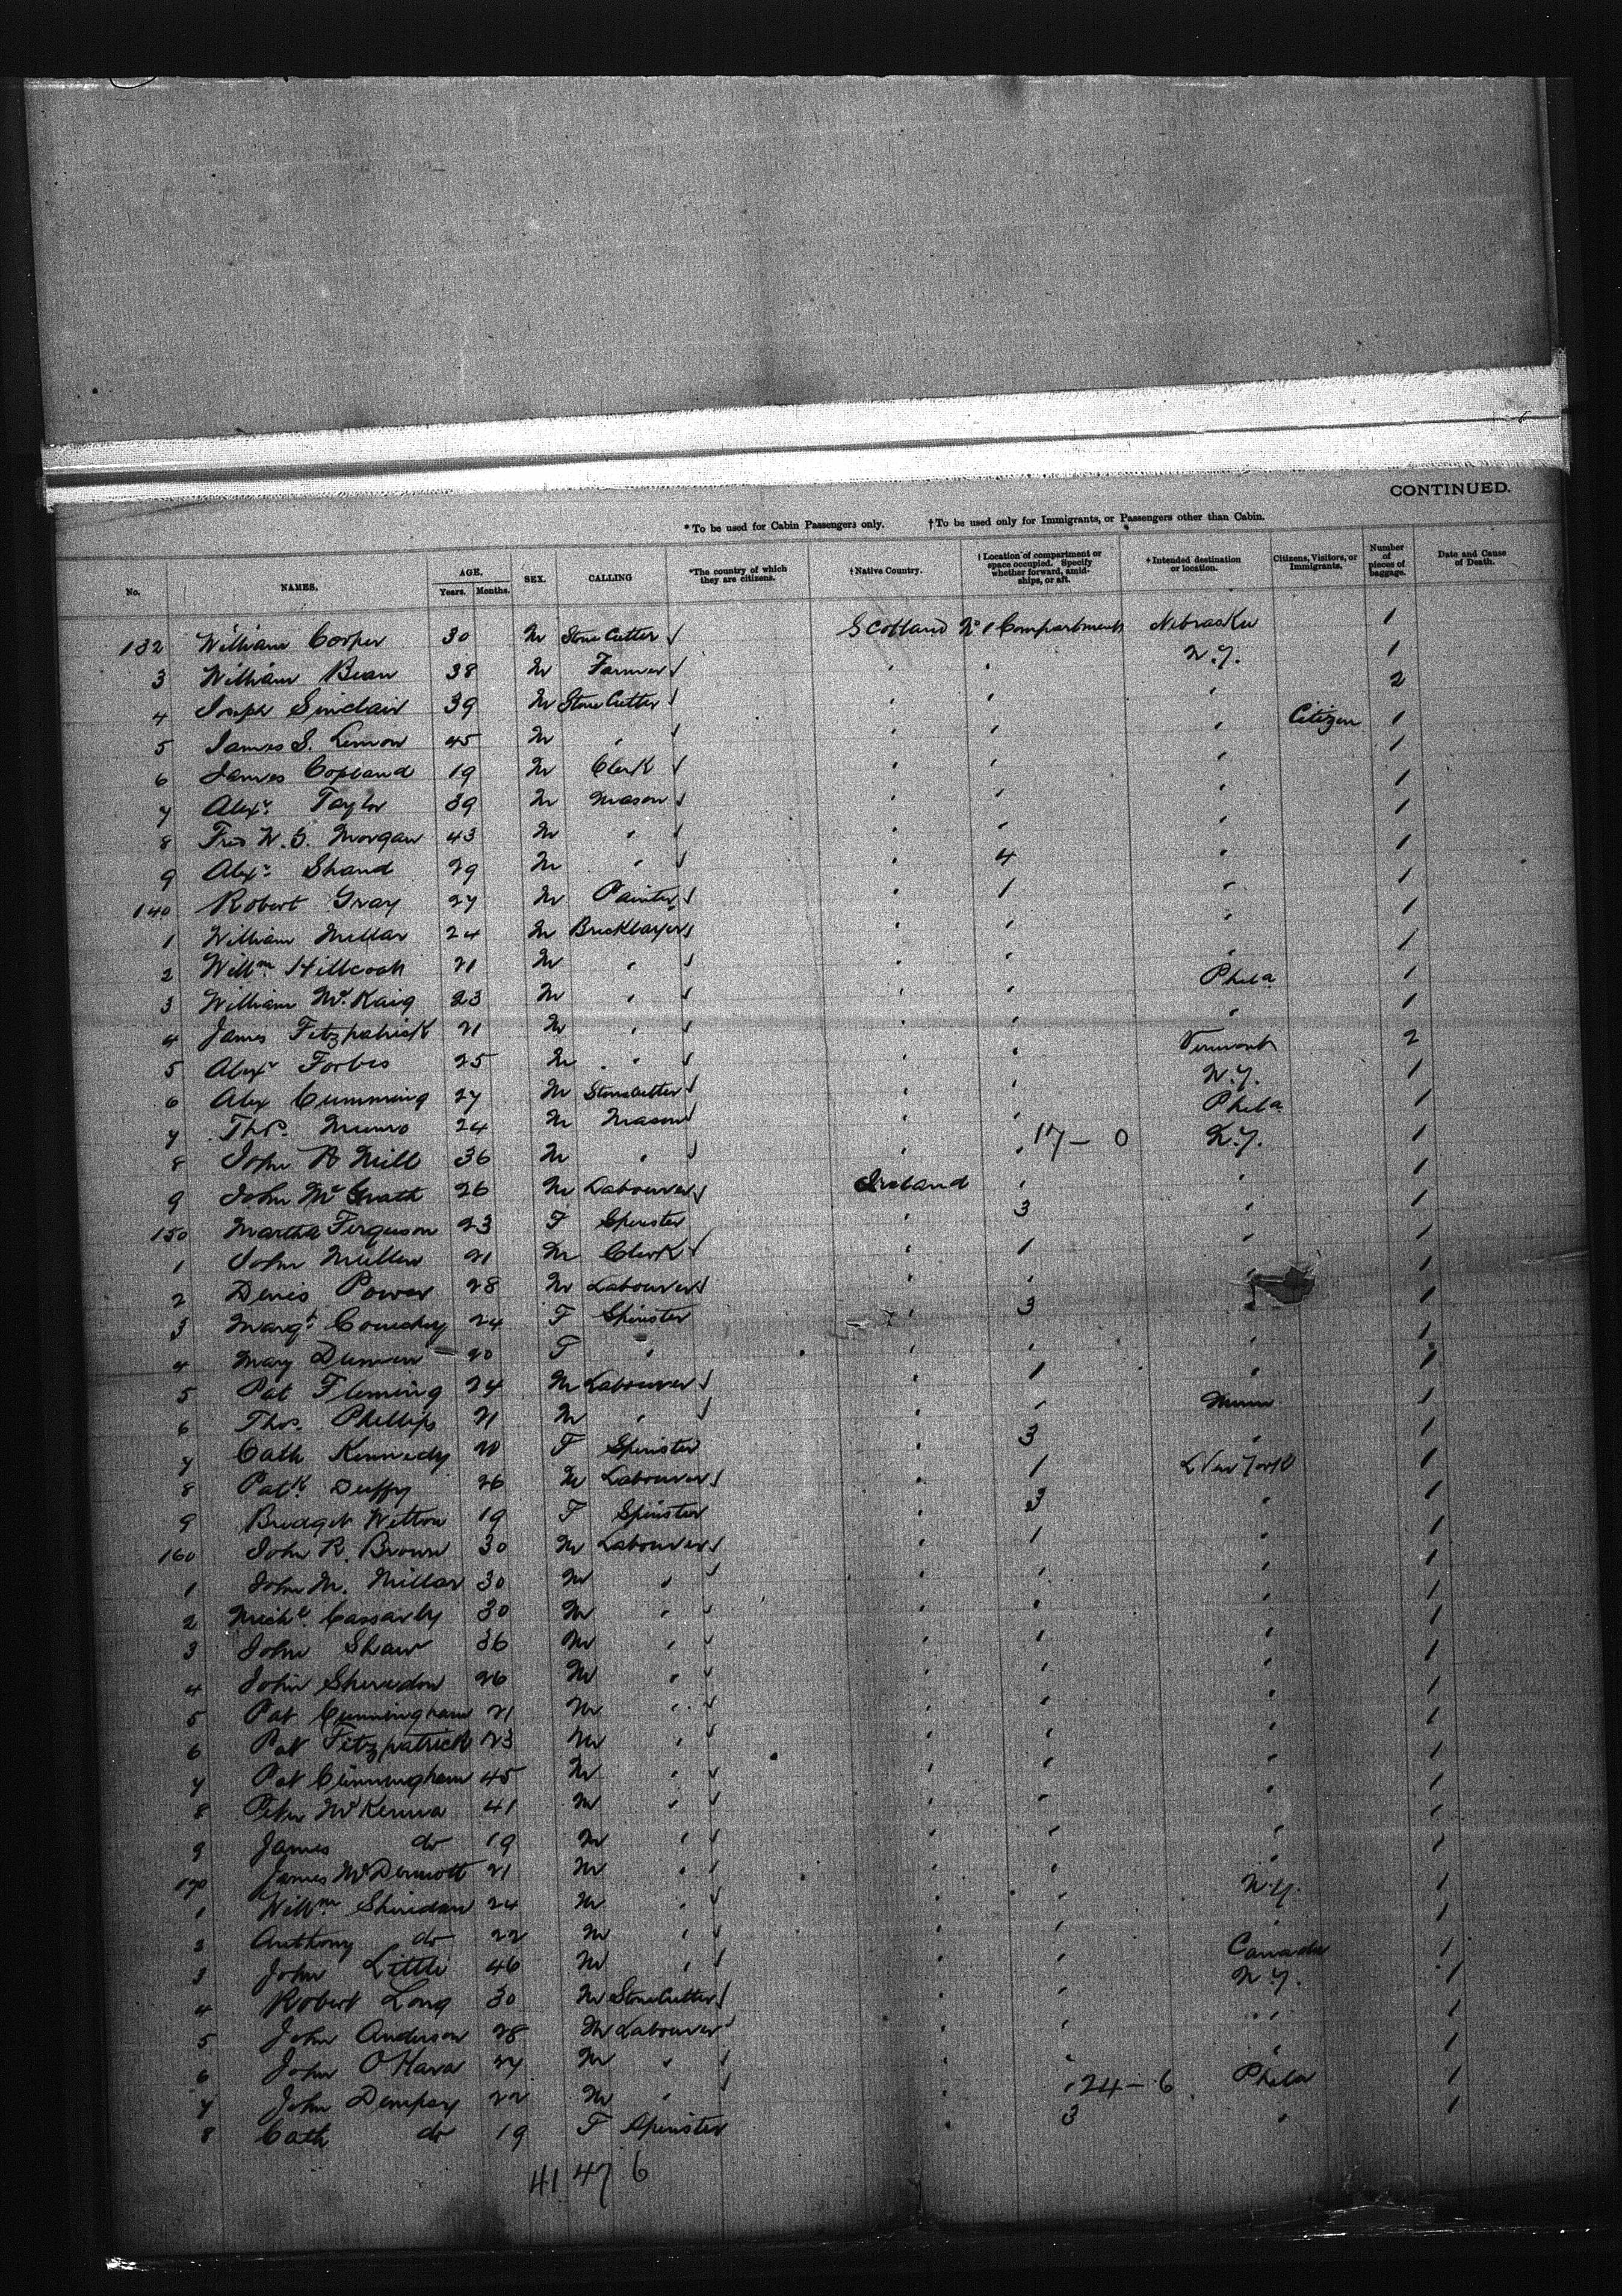 CONTINUED.
* To be used for Cabin Passengers only. † To be used only for Immigrants, or Passengers other than Cabin.
No. NAMES. AGE. Years. Months. SEX. CALLING *The country of which they are citizens. †Native Country. †Location of compartment or space occupied. Specify whether forward, amidships, or aft. †Intended destination or location. Citizens, Visitors, or Immigrants. Number of pieces of baggage. Date and Cause of Death.
132 William Cooper 30 M Stone Cutter Scotland No 1 Compartment Nebraska 1
3 William Bean 38 M Farmer " " N.Y. 1
4 Joseph Sinclair 39 M Stone Cutter " " " 2
5 James S. Lemon 45 M " " " " Citizen 1
6 James Copland 19 M Clerk " " " 1
7 Alexr Taylor 39 M Mason " " " 1
8 Fred W. Morgan 43 M " " " " 1
9 Alexr Shand 29 M " " 4 " 1
140 Robert Gray 27 M Painter " 1 " 1
1 William Millar 24 M Bricklayer " " " 1
2 Willm Hillcoat 21 M " " " " 1
3 William McKaig 23 M " " " Phila 1
4 James Fitzpatrick 21 M " " " " 1
5 Alexr Forbes 25 M " " " Vermont 2
6 Alex Cumming 27 M Stonecutter " " N.Y. 1
7 Thos. Munro 24 M Mason " " Phila 1
8 John A Mill 36 M " " " 17 – 0 N.Y. 1
9 John McGrath 26 M Labourer Ireland " " 1
150 Martha Ferguson 23 F Spinster " 3 " 1
1 John Mullen 21 M Clerk " 1 " 1
2 Denis Power 28 M Labourer " " " 1
3 Margt 24 F Spinster " 3 " 1
4 Mary 20 F " " " " 1
5 Pat Fleming 24 M Labourer " 1 " 1
6 Thos. Phillips 21 M " " " Minn 1
7 Cath Kennedy 20 F Spinster " 3 " 1
8 Patk. Duffy 26 M Labourer " 1 New York 1
9 Bridget 19 F Spinster " 3 " 1
160 John R. Brown 30 M Labourer " 1 " 1
1 John M. Millar 30 M " " " " 1
2 Michl. Cassarly 30 M " " " " 1
3 John Shaw 36 M " " " " 1
4 John Sheridon 26 M " " " " 1
5 Pat Cunningham 21 M " " " " 1
6 Pat Fitzpatrick 23 M " " " " 1
7 Pat Cunningham 45 M " " " " 1
8 Peter McKenna 41 M " " " " 1
9 James do 19 M " " " " 1
170 James McDermott 21 M " " " " 1
1 Willm Sheridan 24 M " " " N.Y. 1
2 Anthony do 22 M " " " 1
3 John Little 46 M " " " Canada 1
4 Robert Long 30 M Stone Cutter " " N.Y. 1
5 John Anderson 28 M Labourer " " " 1
6 John O'Hara 27 M " " " " 1
7 John Dempsy 22 M " " " 24 – 6 Phila 1
8 Cath do 19 F Spinster " 3 " 1
41 47 6